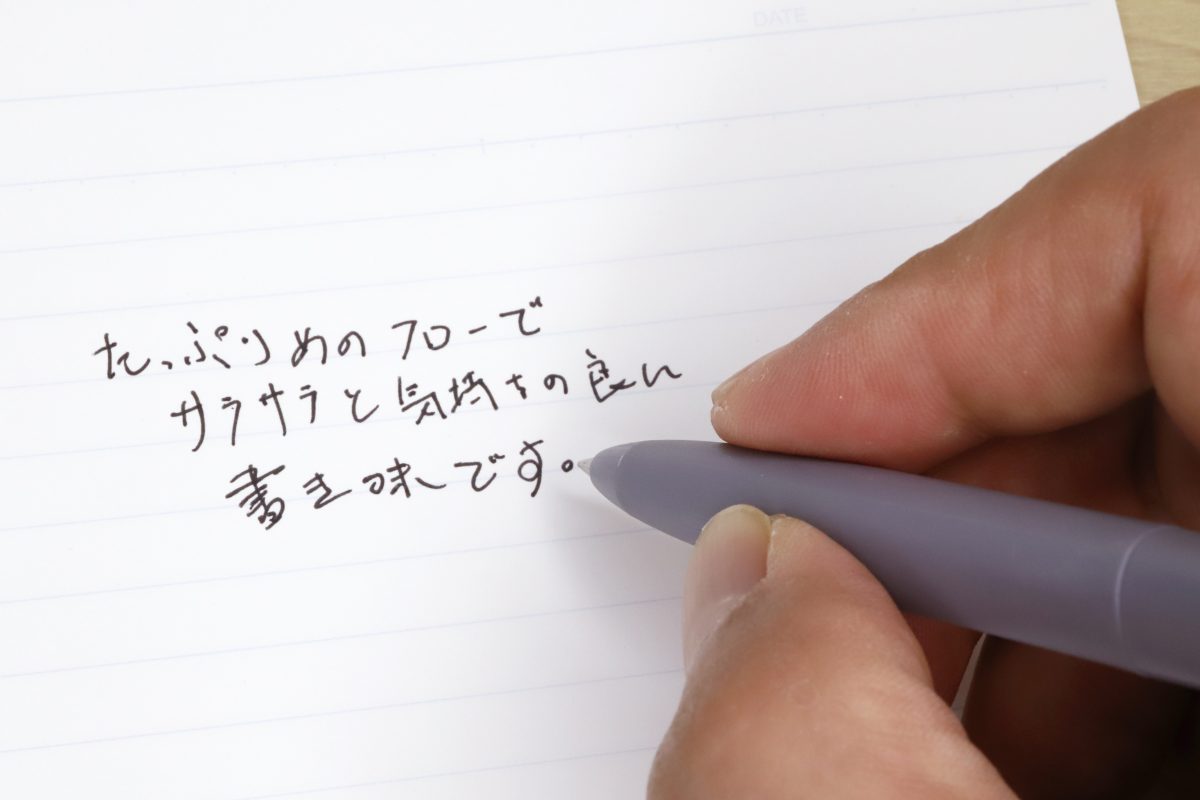 DATE
たっぷりめのフローで
サラサラと気持ちの良い
書き味です。